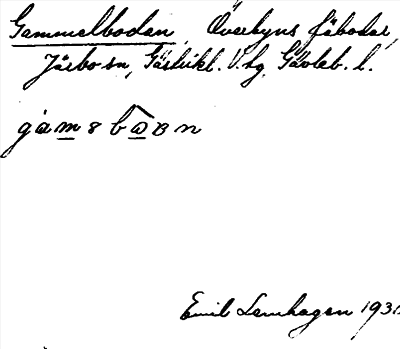 Gammelbodan, Överbyns fäbodar,
Järbo sn, Gästrikl. V. tg, Gävleb. l.
gàm8bωBn
Emil Lenhagen 193